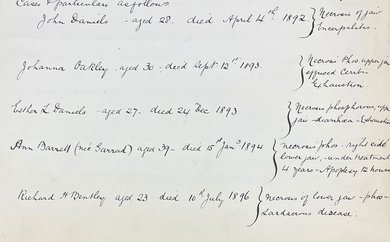 Cases & particulars as follows
John Daniels - aged 28. died April 4th 1892. Necrosis of jaw
Encephalitis.
Johanna Oakley, aged 30 - died Sept 12th 1893. Necrosis Phos upper jaw
exhaustion
Esther L Daniels - aged 27. died 24 Dec 1893 Necrosis phosphorous, upper
jaw - diarrhœa - Exhaustion
Ann Barnell (neé Garrad) aged 39 - died 15th Jany 1894 necrosis phos - right side
lower jaw, - under treatment
4 years - Apoplexy 12 hours
Richard H Bentley, aged 23 died 10th July 1896 necrosis of lower jaw - phos -
Lardaceous disease.